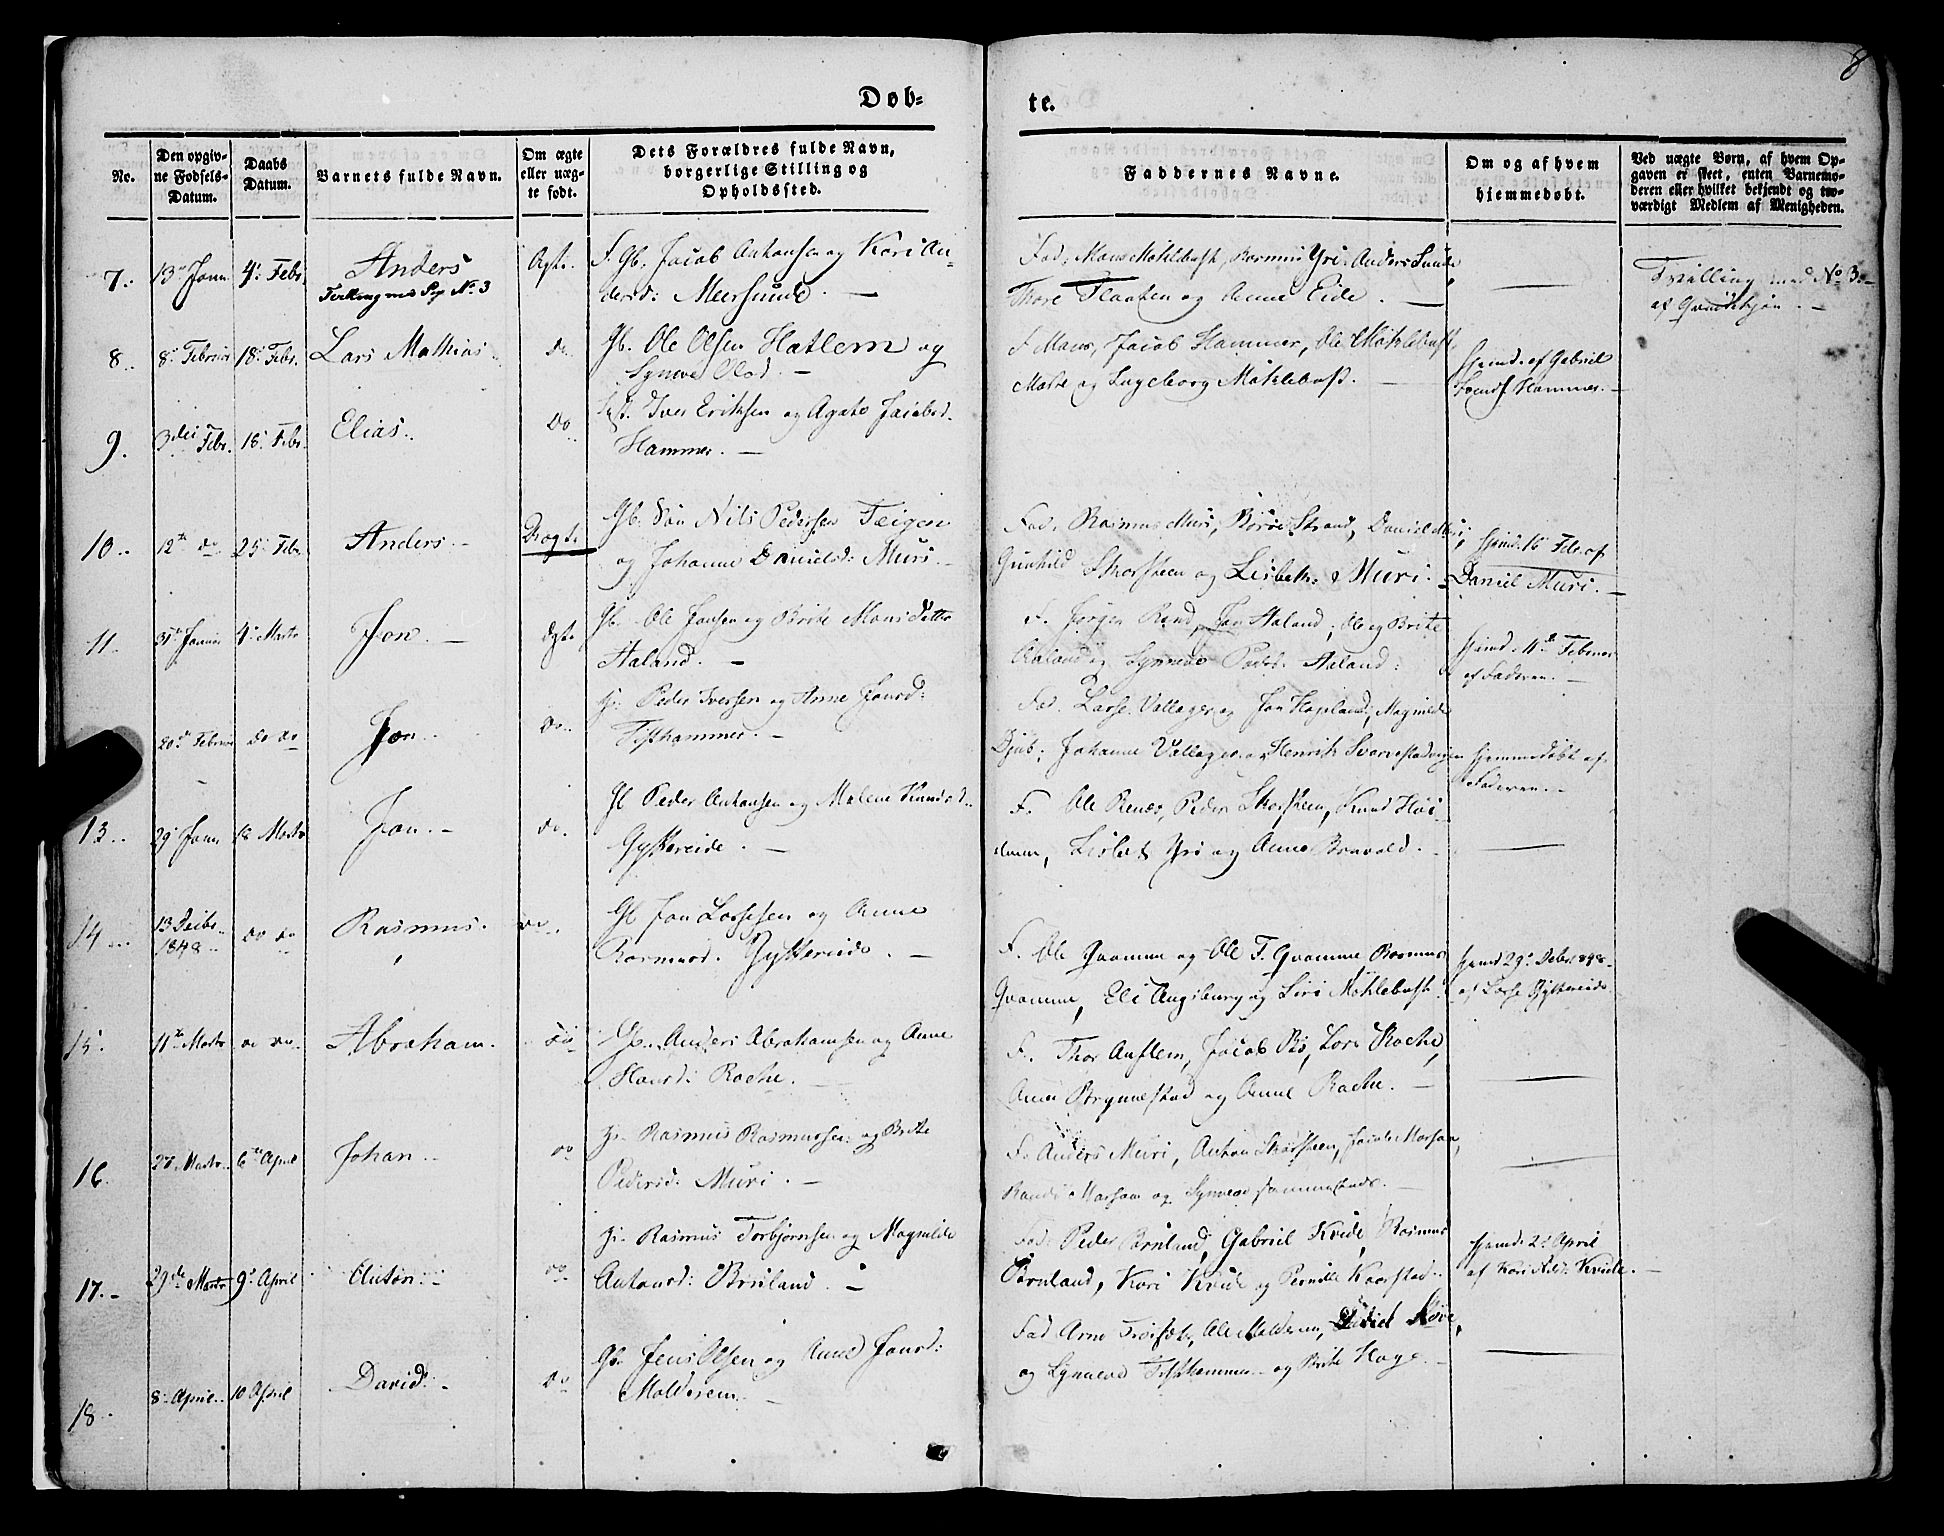 8
Døb=
te.
No.
Den opgiv-
ne Fødsels-
Datum.
Daabs
Datum.
Barnets fulde Navn.
Om ægte
eller uæg-
te født.
Dets Forældres fulde Navn,
borgerlige Stilling og
Opholdssted.
Faddernes Navne.
Om og af hvem
hjemmedøbt.
Ved uægte Børn, af hvem Op-
gaven er skeet, enten Barnemo-
deren eller hvilket bekjendt og tro-
værdigt Medlem af Menigheden.
7. 13 Janr 4. Febr. Anders Ægte. F. Gb. Jacob Antonsen og Kari An-
No. 3 dersd: Meersunde.
Fad. Mons Mohlebust, Rasmus Yri, Anders Sunde
Thore Flaaten og Anne Eide.
Tvilling med No 3.
af Qvindekjøn.
8 8. Februar 18. Febr. Lars Mathias. Do Gb. Ole Olsen Hatlem og
Synneve Olsd.
F. Mons, Jacob Hammer, Ole Mohlebust
Marte og Ingeborg Mohlebust.
Hjemd. af Gabriel
Hammer.
9. 3die Febr. 18. Febr. Elias. Do Iver Eriksen og Agate Jacobsd.
Hammer.
10. 12te do 25. Febr. Anders Uægte Gb. Søn Nils Pedersen Teigen
og Johanne Danielsd: Muri.
Fad. Rasmus Muri, Børre Strand, Daniel Muri,
Gunhild Skorsteen og Lisbeth Muri.
Hjemd. 16 Febr. af
Daniel Muri.
11. 31te Januar 4. Marts Jon. Ægte Gb. Ole Jonsen og Brite Monsdatter
Aaland.
F. Jørgen Rand, Jon Aaland, Ole og Brite
Aaland og Synneve Pedsd. Aaland.
Hjemd. 11te Februar
af Faderen.
20de Februar do do Jon. Do. Peder Iversen og Anne Jonsd:
Fisthammer.
Fad. Lasse Vallager og Jon Hopland, Magnilde
Djub. Johanne Vallager og Henrik
Hjemmedøbt af
Faderen.
13. 29. Janr 18 Marts Jon. do. Gb Peder Antonsen og Malene Knudsd.
Gytkereide.
F. Ole Renæs, Peder Skorsteen, Knud Høi-
Lisbet Yri og Anne Bravold.
14 13 Decbr.
1848 do do Rasmus. do. Gb Jon Lassesen og Anne
Rasmusd. Gytkereide.
F. Ole Qvamme og Ole T. Qvamme Rasmus
Qvamme, Eli Augsburg og Siri Mohlebust.
Hjemd 29. Decbr. 1848
af Lasse Gytkereide.
15. 11te Marts do do. Abraham. do Gb. Anders Abrahamsen og Anne
Hansd: Rache.
F. Thor Anflem, Jacob Bø, Lars Rache,
Anne Brynnestad og Anne Rache.
16. 27. Marts 6te April Johan. do Rasmus Rasmussen og Brite
Pedersd: Muri.
F. Anders Muri, Anton Skorsteen, Jacob
og Synneve sammesteds.
17. 29de Marts 9. April Anton. do. Rasmus Torbjørnsen og Magnilde
Antonsd: Brinland.
Fad: Peder Brinland, Gabriel Kvide, Rasmus
Brinland, Kari Kvide og Pernille Kaarstad.
Hjemd: 2. April
af Kari Kvide.
18. 8. April 10 April David. Do Gb. Jens Olsen og Anne Jonsd:
Molderem.
Fad Arne Ole Molderem,
og Synneve Fisthammer og Brite Hage.